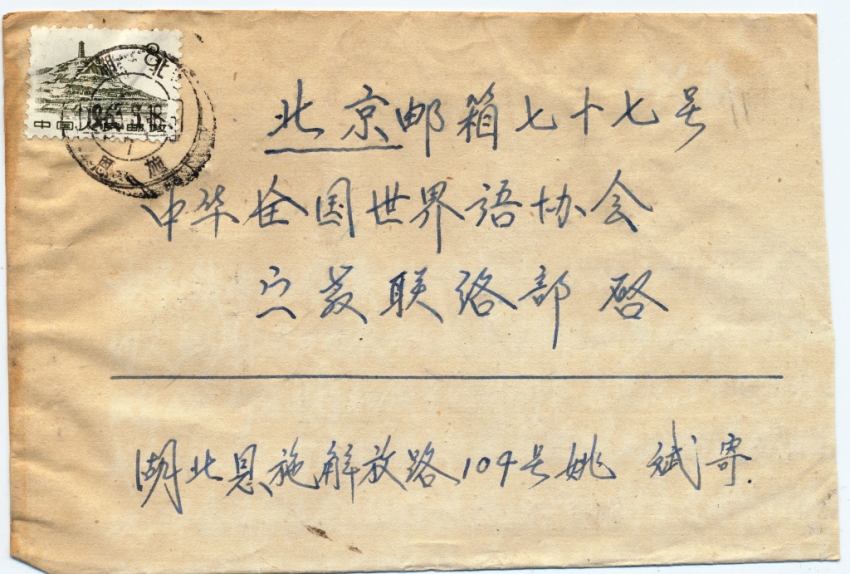 8
湖北
1965.9.15
中国人民邮政
恩施
北京邮箱七十七号
中华全国世界语协会
宣教联络部 启
湖北恩施解放路109号姚 斌寄.